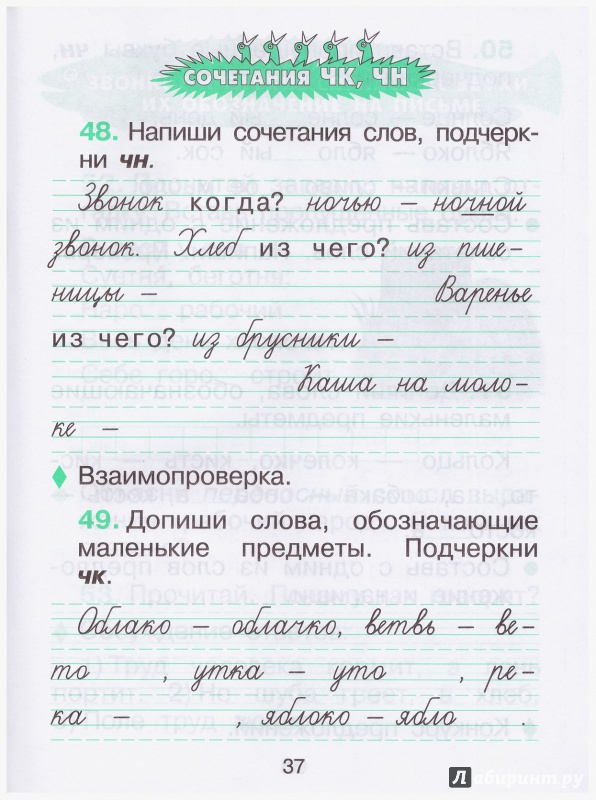 СОЧЕТАНИЯ ЧК, ЧН
48. Напиши сочетания слов, подчерк-
ни чн.
Звонок когда? ночью – ночной
звонок. Хлеб из чего? из пше-
ницы – Варенье
из чего? из брусники –
Каша на моло-
ке –
Взаимопроверка.
49. Допиши слова, обозначающие
маленькие предметы. Подчеркни
чк.
Облако – облачко, ветвь – ве-
то , утка – уто , ре-
ка – , яблоко – ябло .
37
Лабиринт.ру